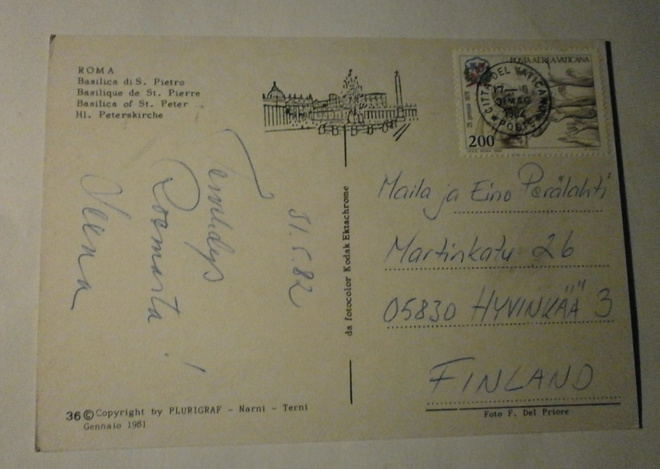 ROMA
Basilica di S. Pietro
Basilique de St. Pierre
Basilica of St. Peter
Hl. Peterskirche
POSTA AEREA VATICANA
CITTÀ DEL VATICANO
POSTE
200
31.5.82
Terveisiä
Roomasta!
Leena
da fotocolor Kodak Ektachrome
Maila ja Eino Perälahti
Martinkatu 26
05830 HYVINKÄÄ 3
FINLAND
36 © Copyright by PLURIGRAF - Narni - Terni
Gennaio 1981
Foto F. Del Priore